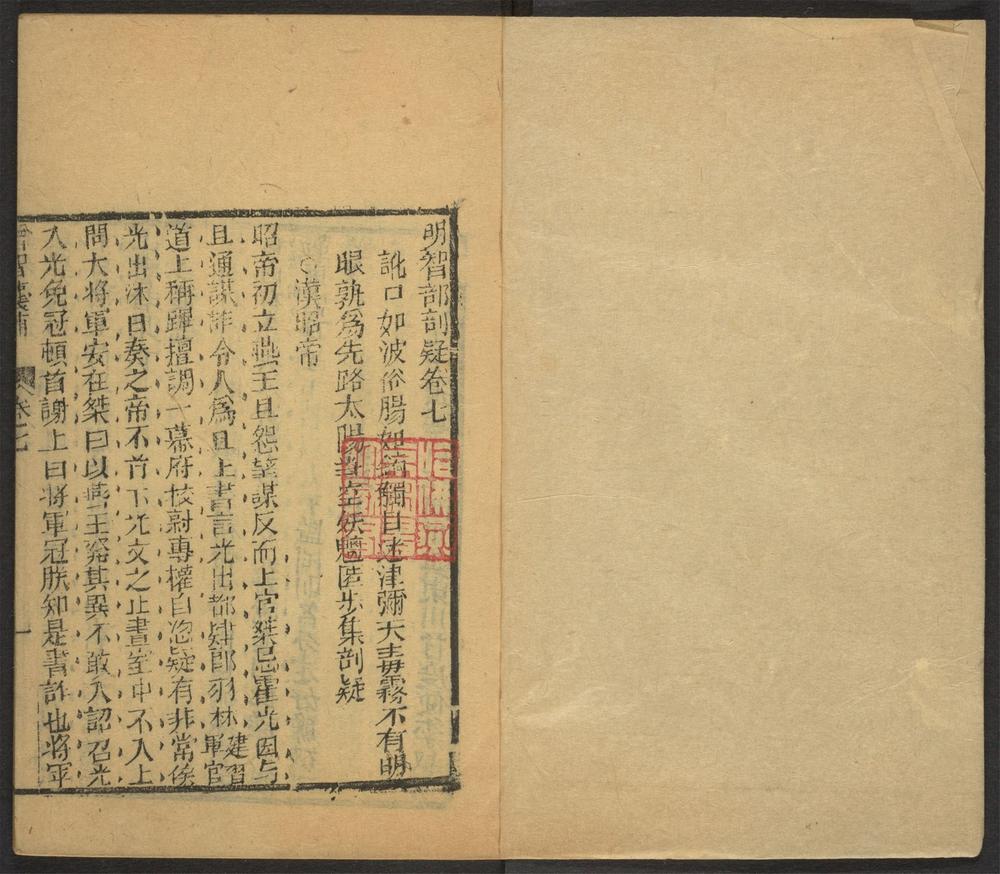 明智部剖疑卷七
訛口如波俗腸如錮觸目迷津彌天毒霧不有明
眼孰爲先路太陽當空妖魑匿步集剖疑
○漢昭帝
昭帝初立燕王旦怨望謀反而上官桀忌霍光因与
旦通謀詐令人爲旦上書言光出都肄郎羽林建習軍官
道上稱蹕擅調一幕府校尉專權自恣疑有非常俟
光出沐日奏之帝不肯下光文之止畫室中不入上
問大將軍安在桀曰以燕王發其異不敢入詔召光
入光免冠頓首謝上曰將軍冠朕知是書詐也將軍
智囊補
卷七
一